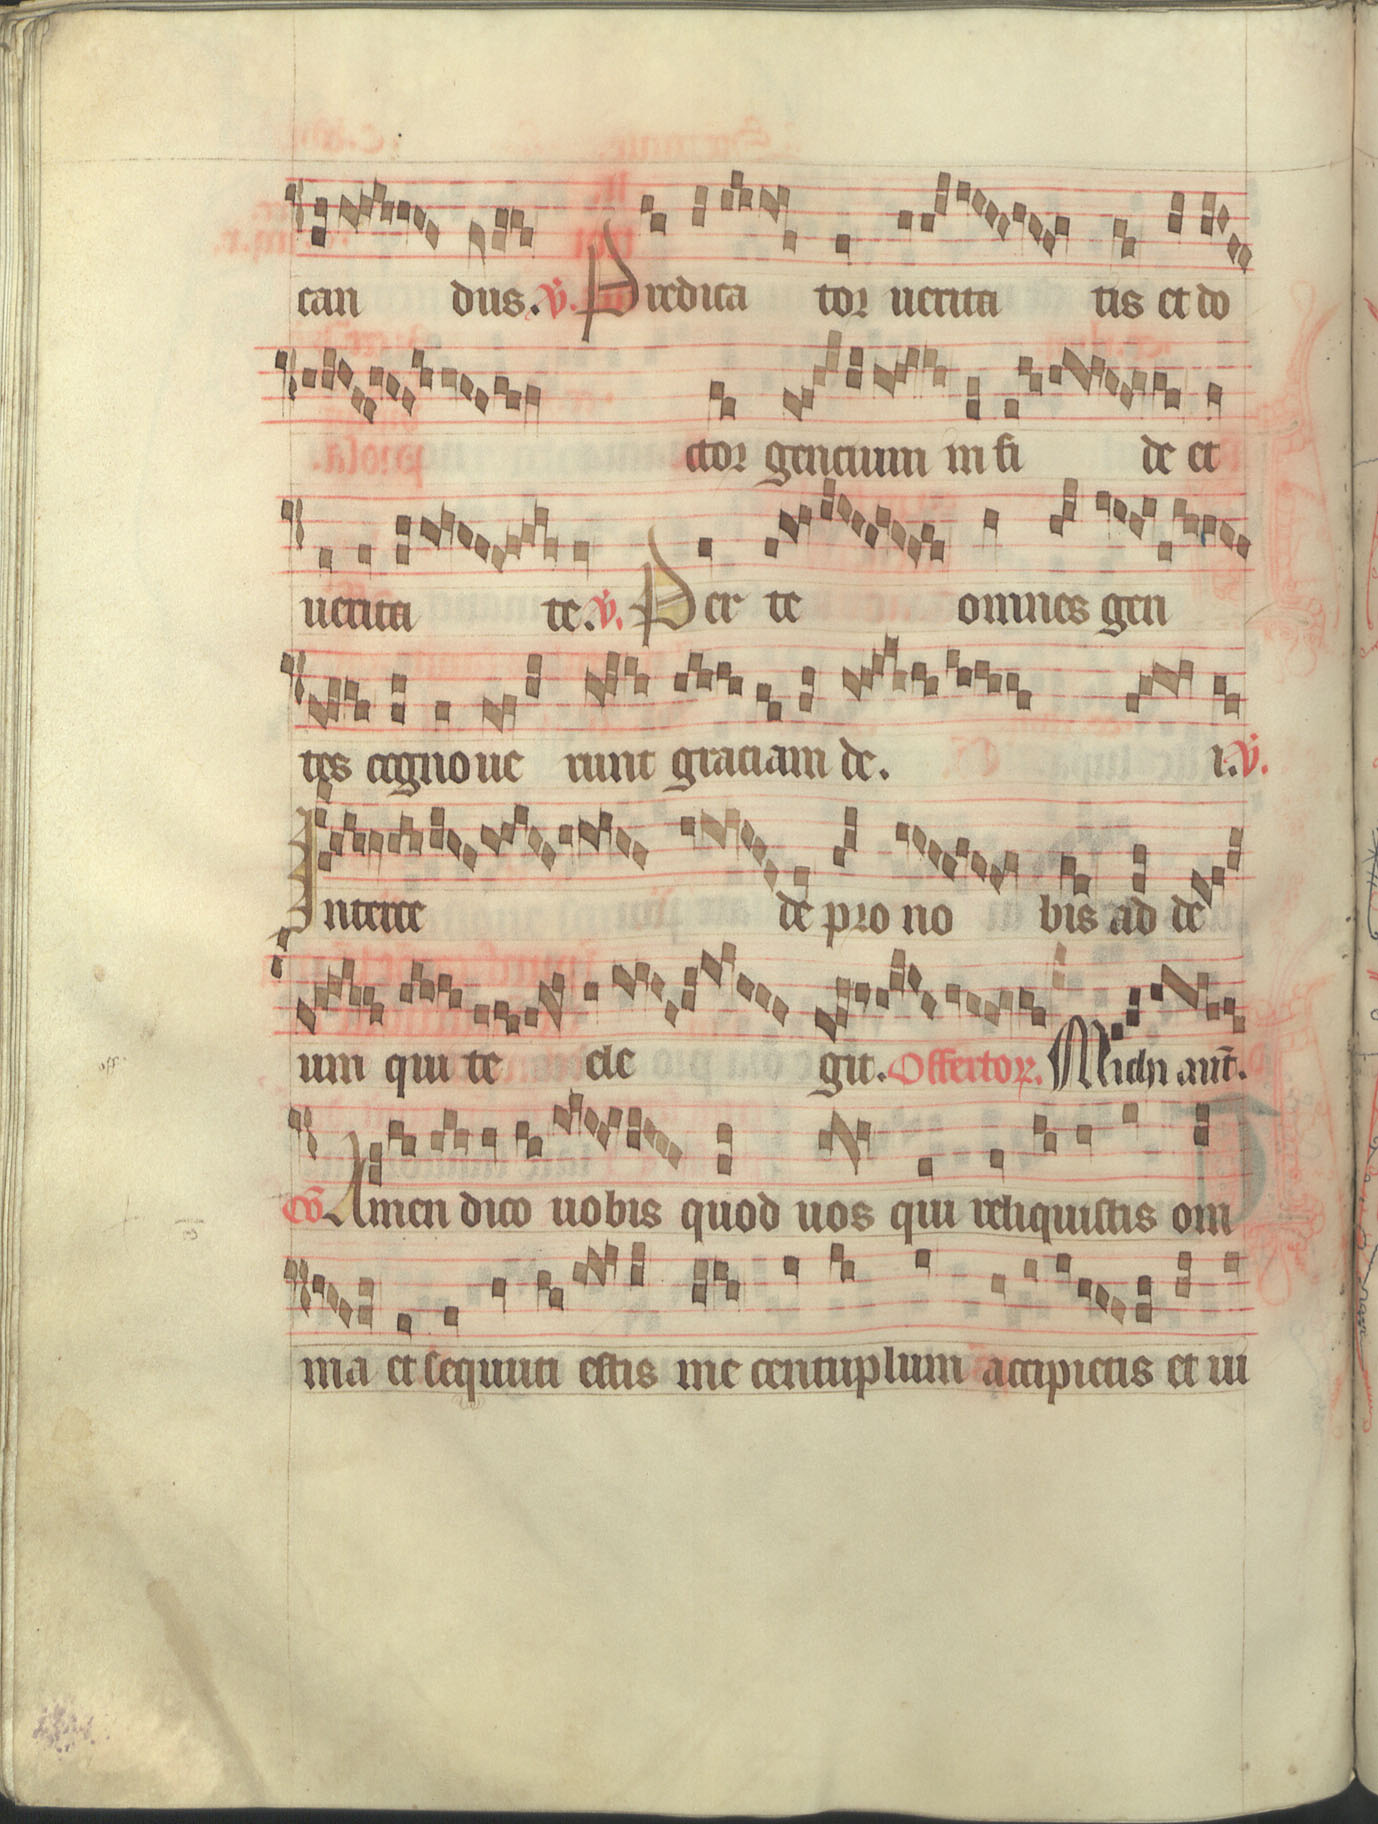 can dus. V. Predica tor uerita tis et do
ctor gencium in fi de et
uerita te. V. Per te omnes gen
tes cognoue runt graciam de. i. V.
Interce de pro no bis ad de
um qui te ele git. Offertor. Michi aut.
Co Amen dico uobis quod uos qui reliquistis om
nia et sequuti estis me centuplum accipietis et ui